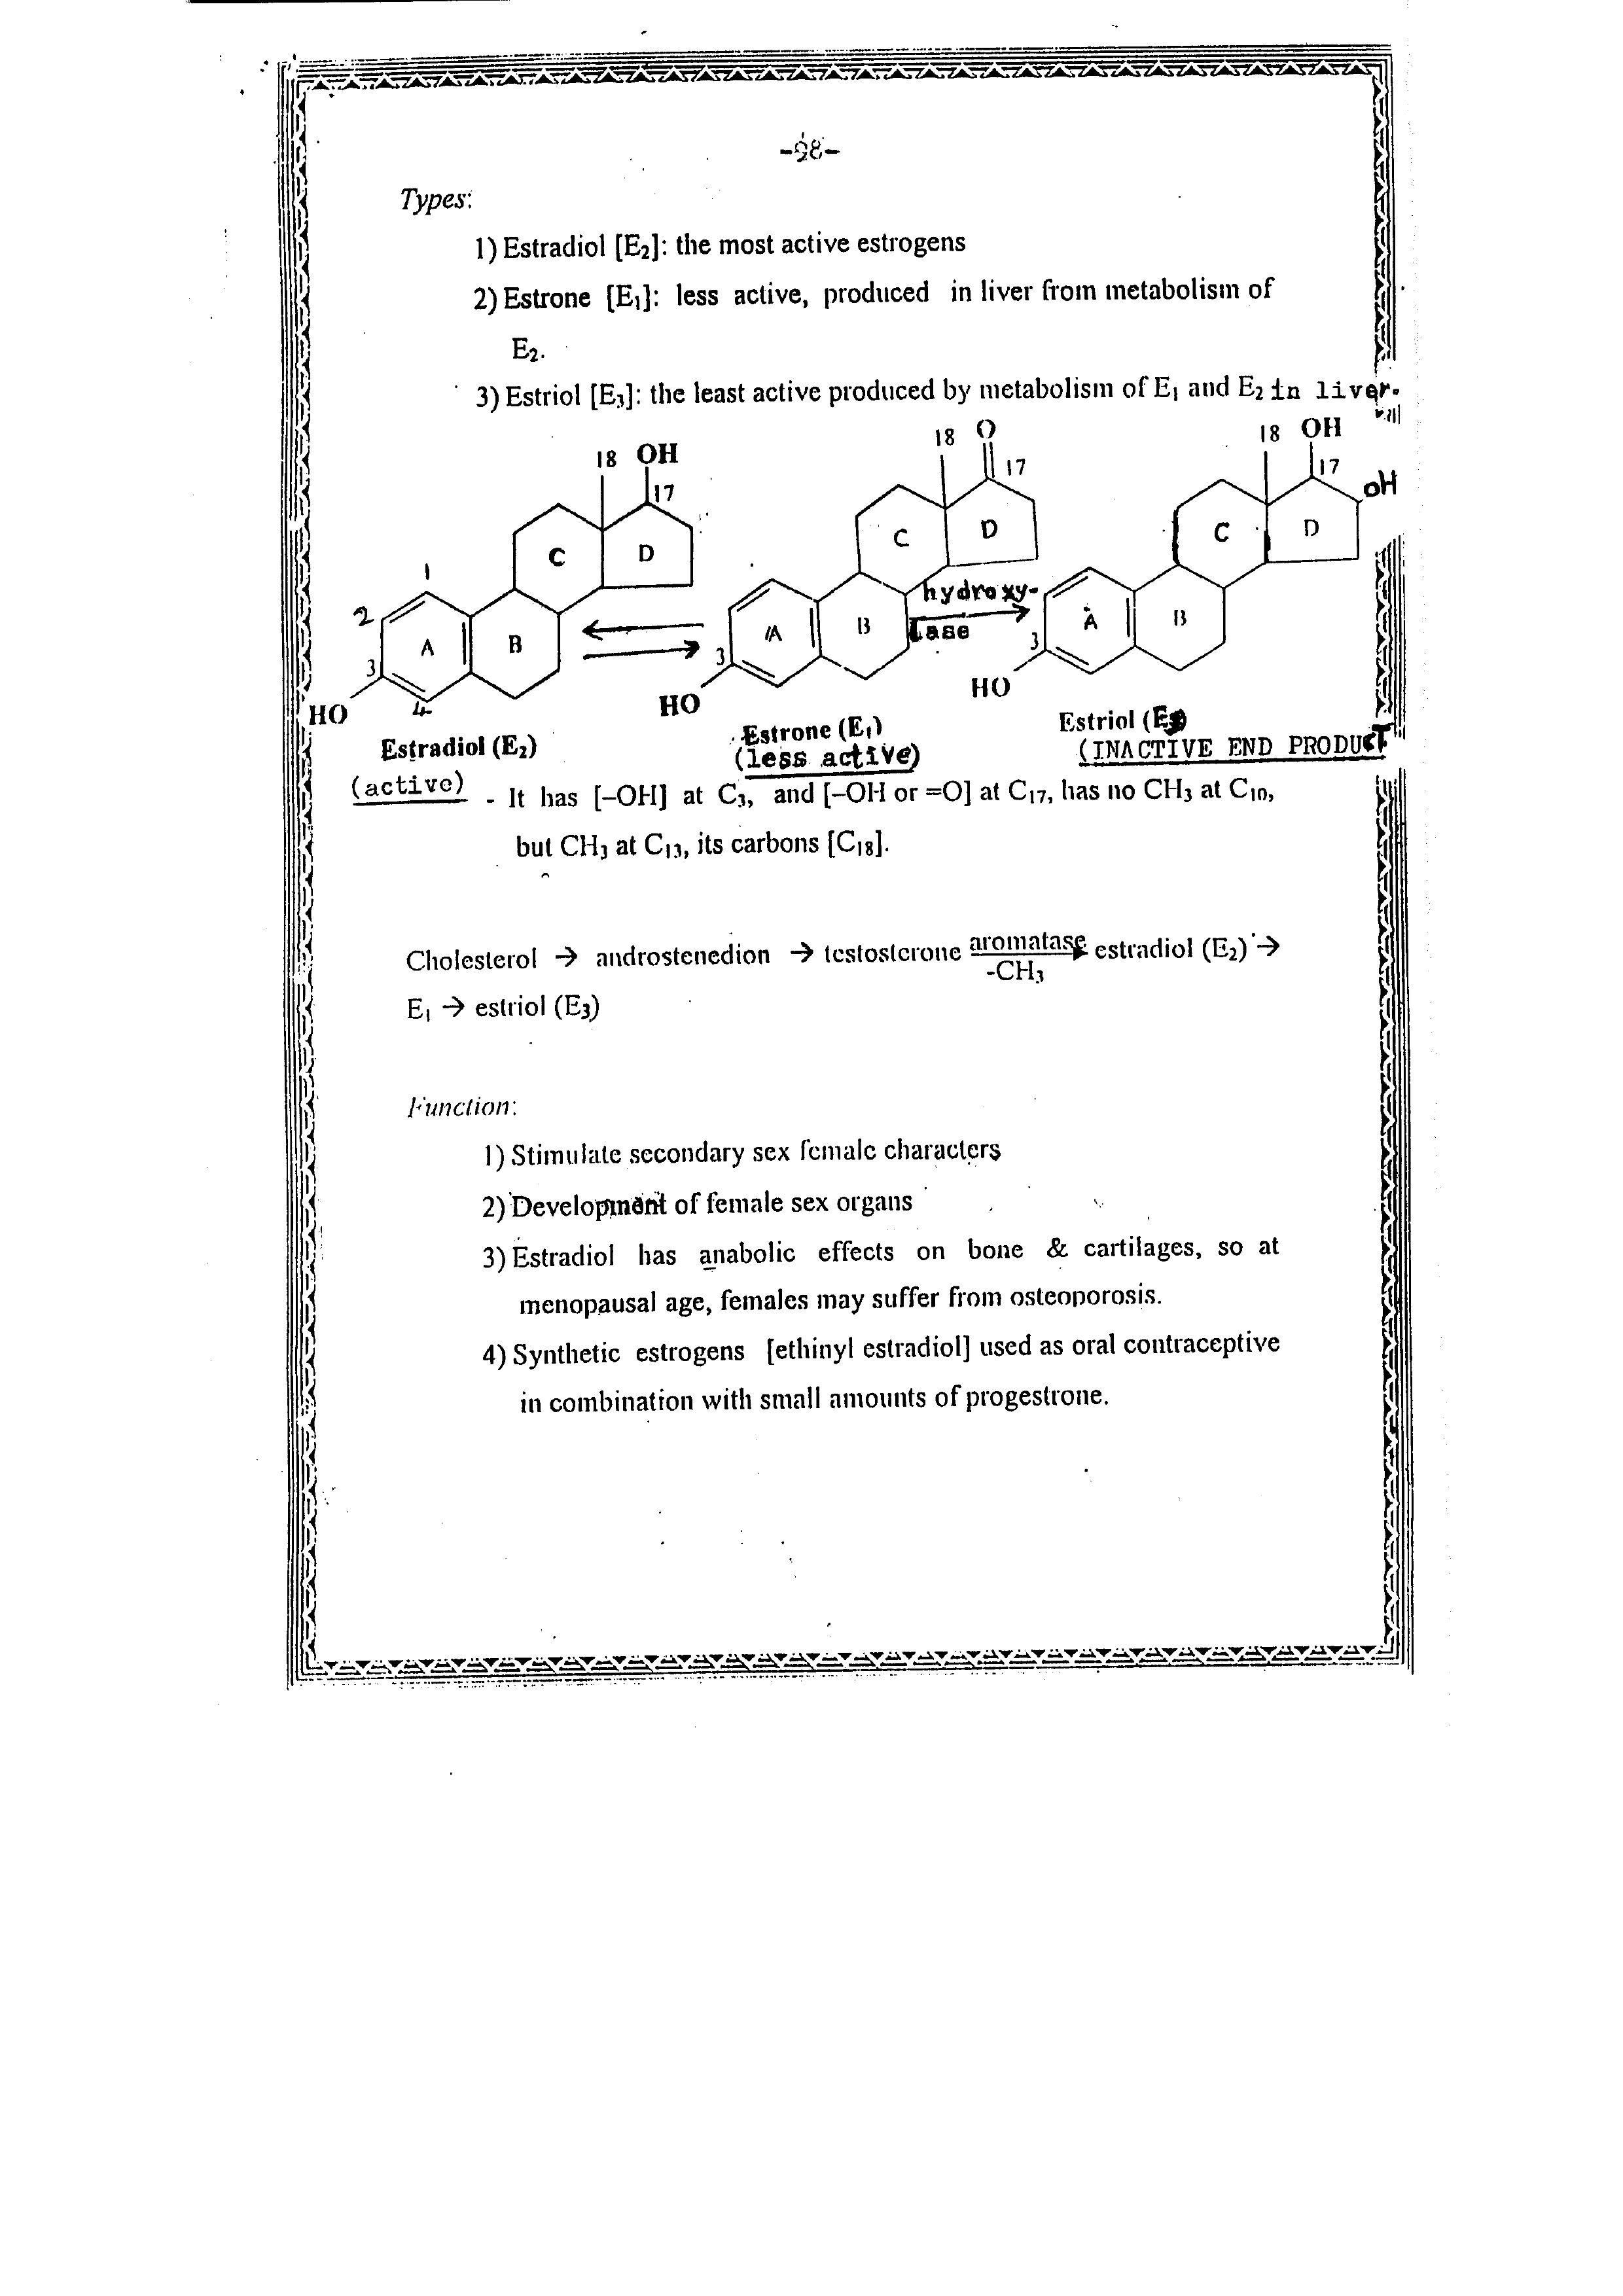 -98-
Types:
1) Estradiol [E₂]: the most active estrogens
2) Estrone [E₁]: less active, produced in liver from metabolism of
E₂.
3) Estriol [E₃]: the least active produced by metabolism of E₁ and E₂ in liver.
18 OH
17
1
2
3
4
A
B
C
D
HO
Estradiol (E₂)
(active)
18 O
17
3
A
B
C
D
HO
Estrone (E₁)
(less active)
hydroxy-
lase
18 OH
17
OH
3
A
B
C
D
HO
Estriol (E₃)
(INACTIVE END PRODUCT
- It has [–OH] at C₃, and [–OH or =O] at C₁₇, has no CH₃ at C₁₀,
but CH₃ at C₁₃, its carbons [C₁₈].
Cholesterol → androstenedion → testosterone aromatase -CH₃ → estradiol (E₂) →
E₁ → estriol (E₃)
Function:
1) Stimulate secondary sex female characters
2) Development of female sex organs
3) Estradiol has anabolic effects on bone & cartilages, so at
menopausal age, females may suffer from osteoporosis.
4) Synthetic estrogens [ethinyl estradiol] used as oral contraceptive
in combination with small amounts of progestrone.